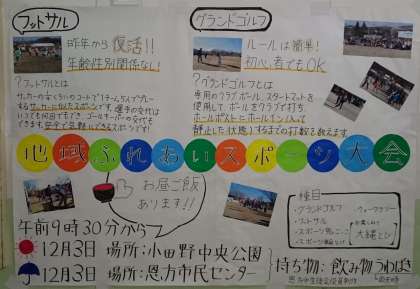 フットサル
昨年から復活!!
年齢性別関係なし!
?フットサルとは
サッカーの半分くらいのコートで1チーム5人でプレー
するサッカーに似たスポーツです。選手の交代は
いつでも何回でもでき、ゴールキーパーの交代も
できます。安全で気軽にできるスポーツです!
グランドゴルフ
ルールは簡単!
初心者でもOK
?グランドゴルフとは
専用のクラブ、ボール、スタートマットを
使用して ボールをクラブで打ち、
ホールポストにホールイン(入って
静止した状態)するまでの打数を数えます
地域ふれあいスポーツ大会
お昼ご飯
あります!!
種目
・グランドゴルフ
・フットサル
・スポーツ
・スポーツ
・ウォークラリー
大縄とび
午前9時30分から
12月3日 場所:小田野中央公園
12月3日 場所:恩方市民センター
持ち物:飲み物 うわばき
雨天時